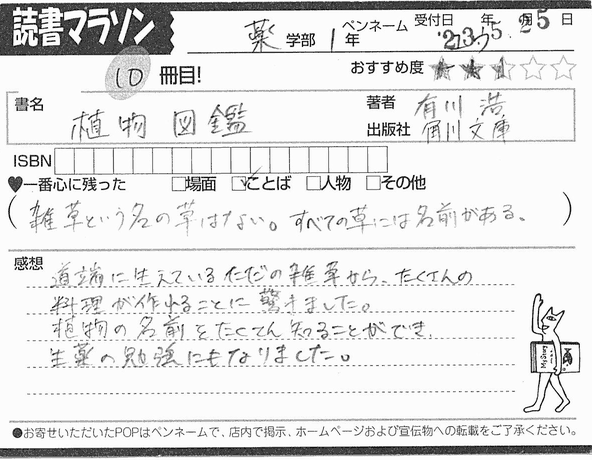 読書マラソン
薬 学部 1 年 ペンネーム 受付日 年 月 日
10 冊目! おすすめ度 ★★★☆☆
書名 植物図鑑 著者 有川 浩
出版社 角川文庫
ISBN
♥一番心に残った □場面 ☑ことば □人物 □その他
(雑草という名の草はない。すべての草には名前がある。)
感想 道端に生えているただの雑草から、たくさんの
料理が作れることに驚きました。
植物の名前をたくさん知ることができ、
生薬の勉強にもなりました。
●お寄せいただいたPOPはペンネームで、店内で掲示、ホームページおよび宣伝物への転載をご了承ください。